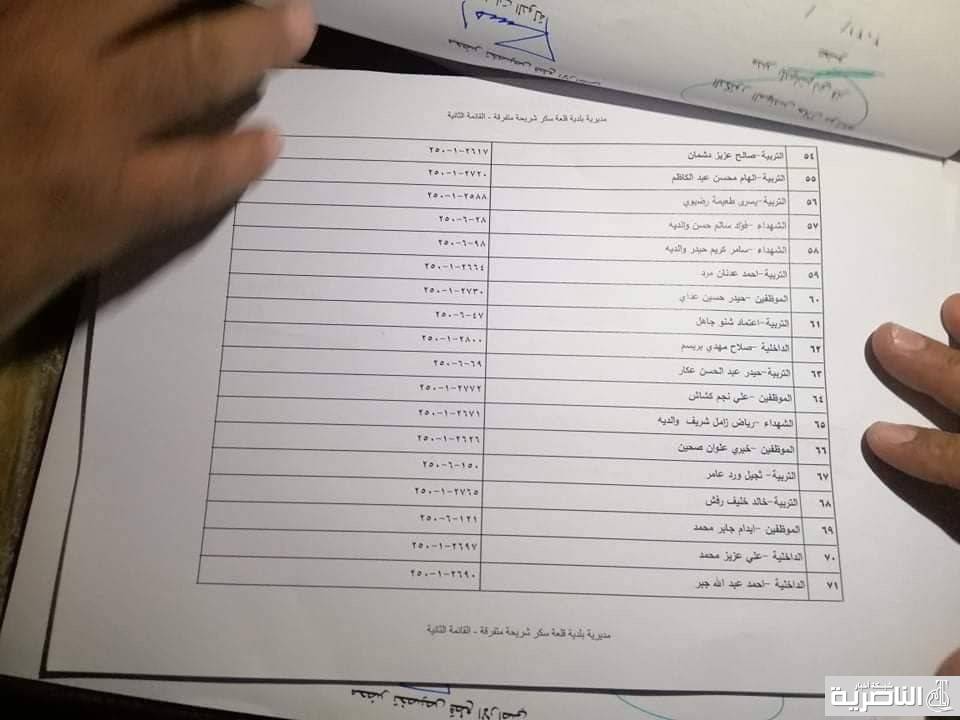 محضر تخصيص قطع الأراضي
مديرية بلدية قلعة سكر شريحة متفرقة - القائمة الثانية
٥٤ التربية-صالح عزيز دشمان ٢٥٠-١-٢٦١٧
٥٥ التربية-الهام محسن عبد الكاظم ٢٥٠-١-٢٧٢٠
٥٦ التربية-يسرى طعيمة رضيوي ٢٥٠-١-٢٥٨٨
٥٧ الشهداء -فؤاد سالم حسن والديه ٢٥٠-٦-٢٨
٥٨ الشهداء -سامر كريم حيدر والديه ٢٥٠-٦-٩٨
٥٩ التربية-احمد عدنان مرد ٢٥٠-١-٢٦٦٤
٦٠ الموظفين -حيدر حسين عداي ٢٥٠-١-٢٧٣٠
٦١ التربية-اعتماد شنو جاهل ٢٥٠-٦-٤٧
٦٢ الداخلية -صلاح مهدي بريسم ٢٥٠-١-٢٨٠٠
٦٣ التربية-حيدر عبد الحسن عكار ٢٥٠-٦-٦٩
٦٤ الموظفين -علي نجم كشاش ٢٥٠-١-٢٧٧٢
٦٥ الشهداء -رياض زامل شريف والديه ٢٥٠-١-٢٦٧١
٦٦ الموظفين -خيري علوان صحين ٢٥٠-١-٢٦٢٦
٦٧ التربية- ثجيل ورد عامر ٢٥٠-٦-١٥٠
٦٨ التربية-خالد خليف رفش ٢٥٠-١-٢٧٦٥
٦٩ الموظفين -ايدام جابر محمد ٢٥٠-٦-١٢١
٧٠ الداخلية -علي عزيز محمد ٢٥٠-١-٢٦٩٧
٧١ الداخلية -احمد عبد الله جبر ٢٥٠-١-٢٦٩٠
مديرية بلدية قلعة سكر شريحة متفرقة - القائمة الثانية
محضر تخصيص قطع الأراضي
شبكة اخبار
الناصرية